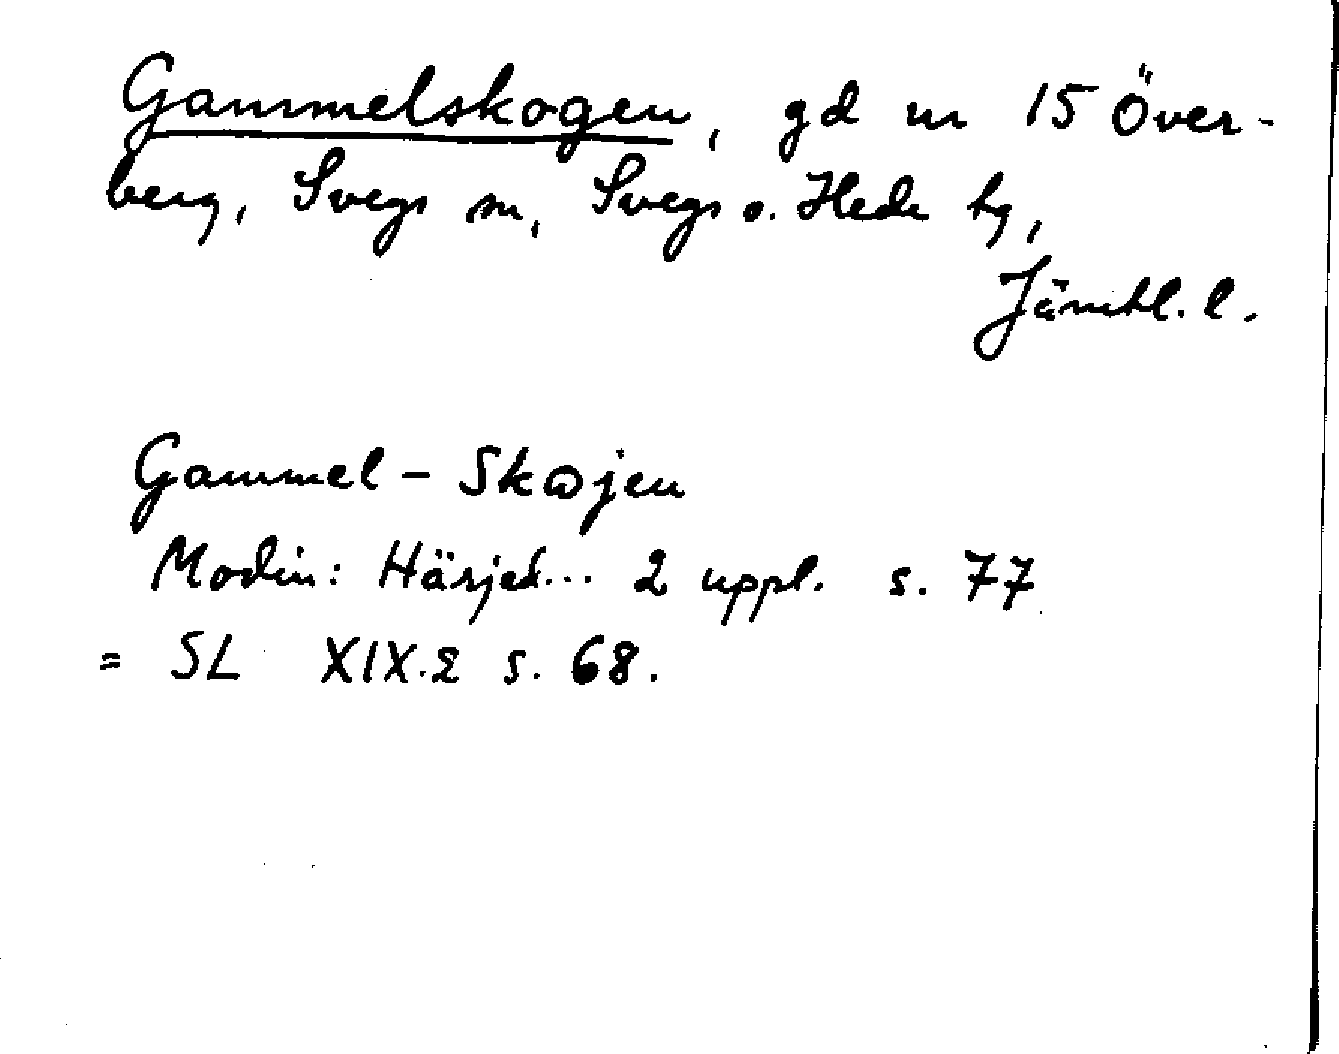 Gammelskogen, gd nr 15 Över-
berg, Svegs sn, Svegs o. Hede hg,
Jämtl. l.
Gammel-Skωjen
Modin: Härjed... 2 uppl. s. 77
= SL XIX.2 s. 68.